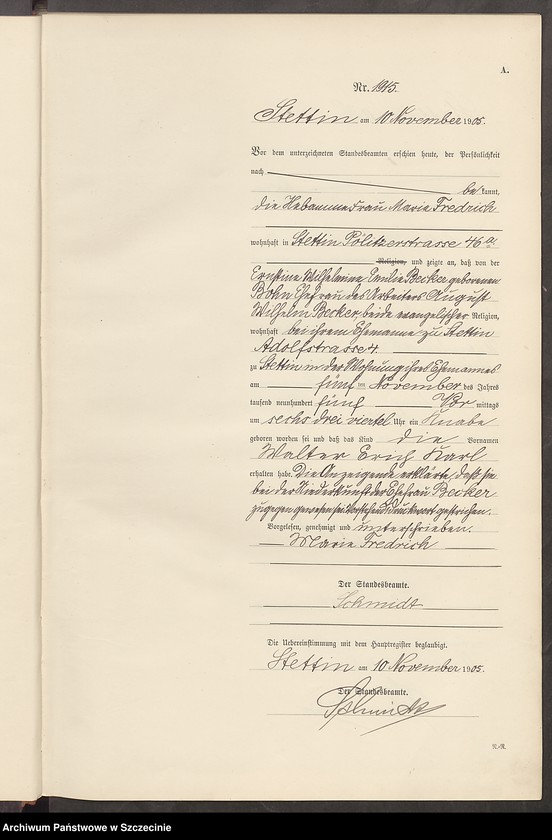 A.
Nr. 1915.
Stettin am 10 November 1905.
Vor dem unterzeichneten Standesbeamten erschien heute, der Persönlichkeit
nach
be kannt,
die Hebamme Frau Marie Fredrich
wohnhaft in Stettin Pölitzerstrasse 46a
Religion, und zeigte an, daß von der
Ernstine Wilhelmine Emilie Becker geborenen
Bohn Ehefrau des Arbeiters August
Wilhelm Becker, beide evangelischer Religion,
wohnhaft bei ihrem Ehemanne zu Stettin
Adolfstrasse 4.
zu Stettin in der Wohnung ihres Ehemannes
am fünf ten November des Jahres
tausend neunhundert fünf Vor mittags
um sechs drei viertel Uhr ein Knabe
geboren worden sei und daß das Kind die Vornamen
Walter Erich Karl
erhalten habe. Die Anzeigende erklärte, daß sie
bei der Niederkunft der Ehefrau Becker
zugegen gewesen sei. Vorstehend 1 Druckwort gestrichen.
Vorgelesen, genehmigt und unterschrieben.
Marie Fredrich
Der Standesbeamte.
Schmidt
Die Uebereinstimmung mit dem Hauptregister beglaubigt.
Stettin am 10 November 1905.
Der Standesbeamte.
Schmidt
N.-R.
Archiwum Państwowe w Szczecinie